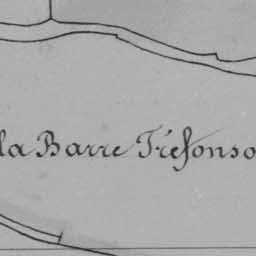 la Barre Tréfonso